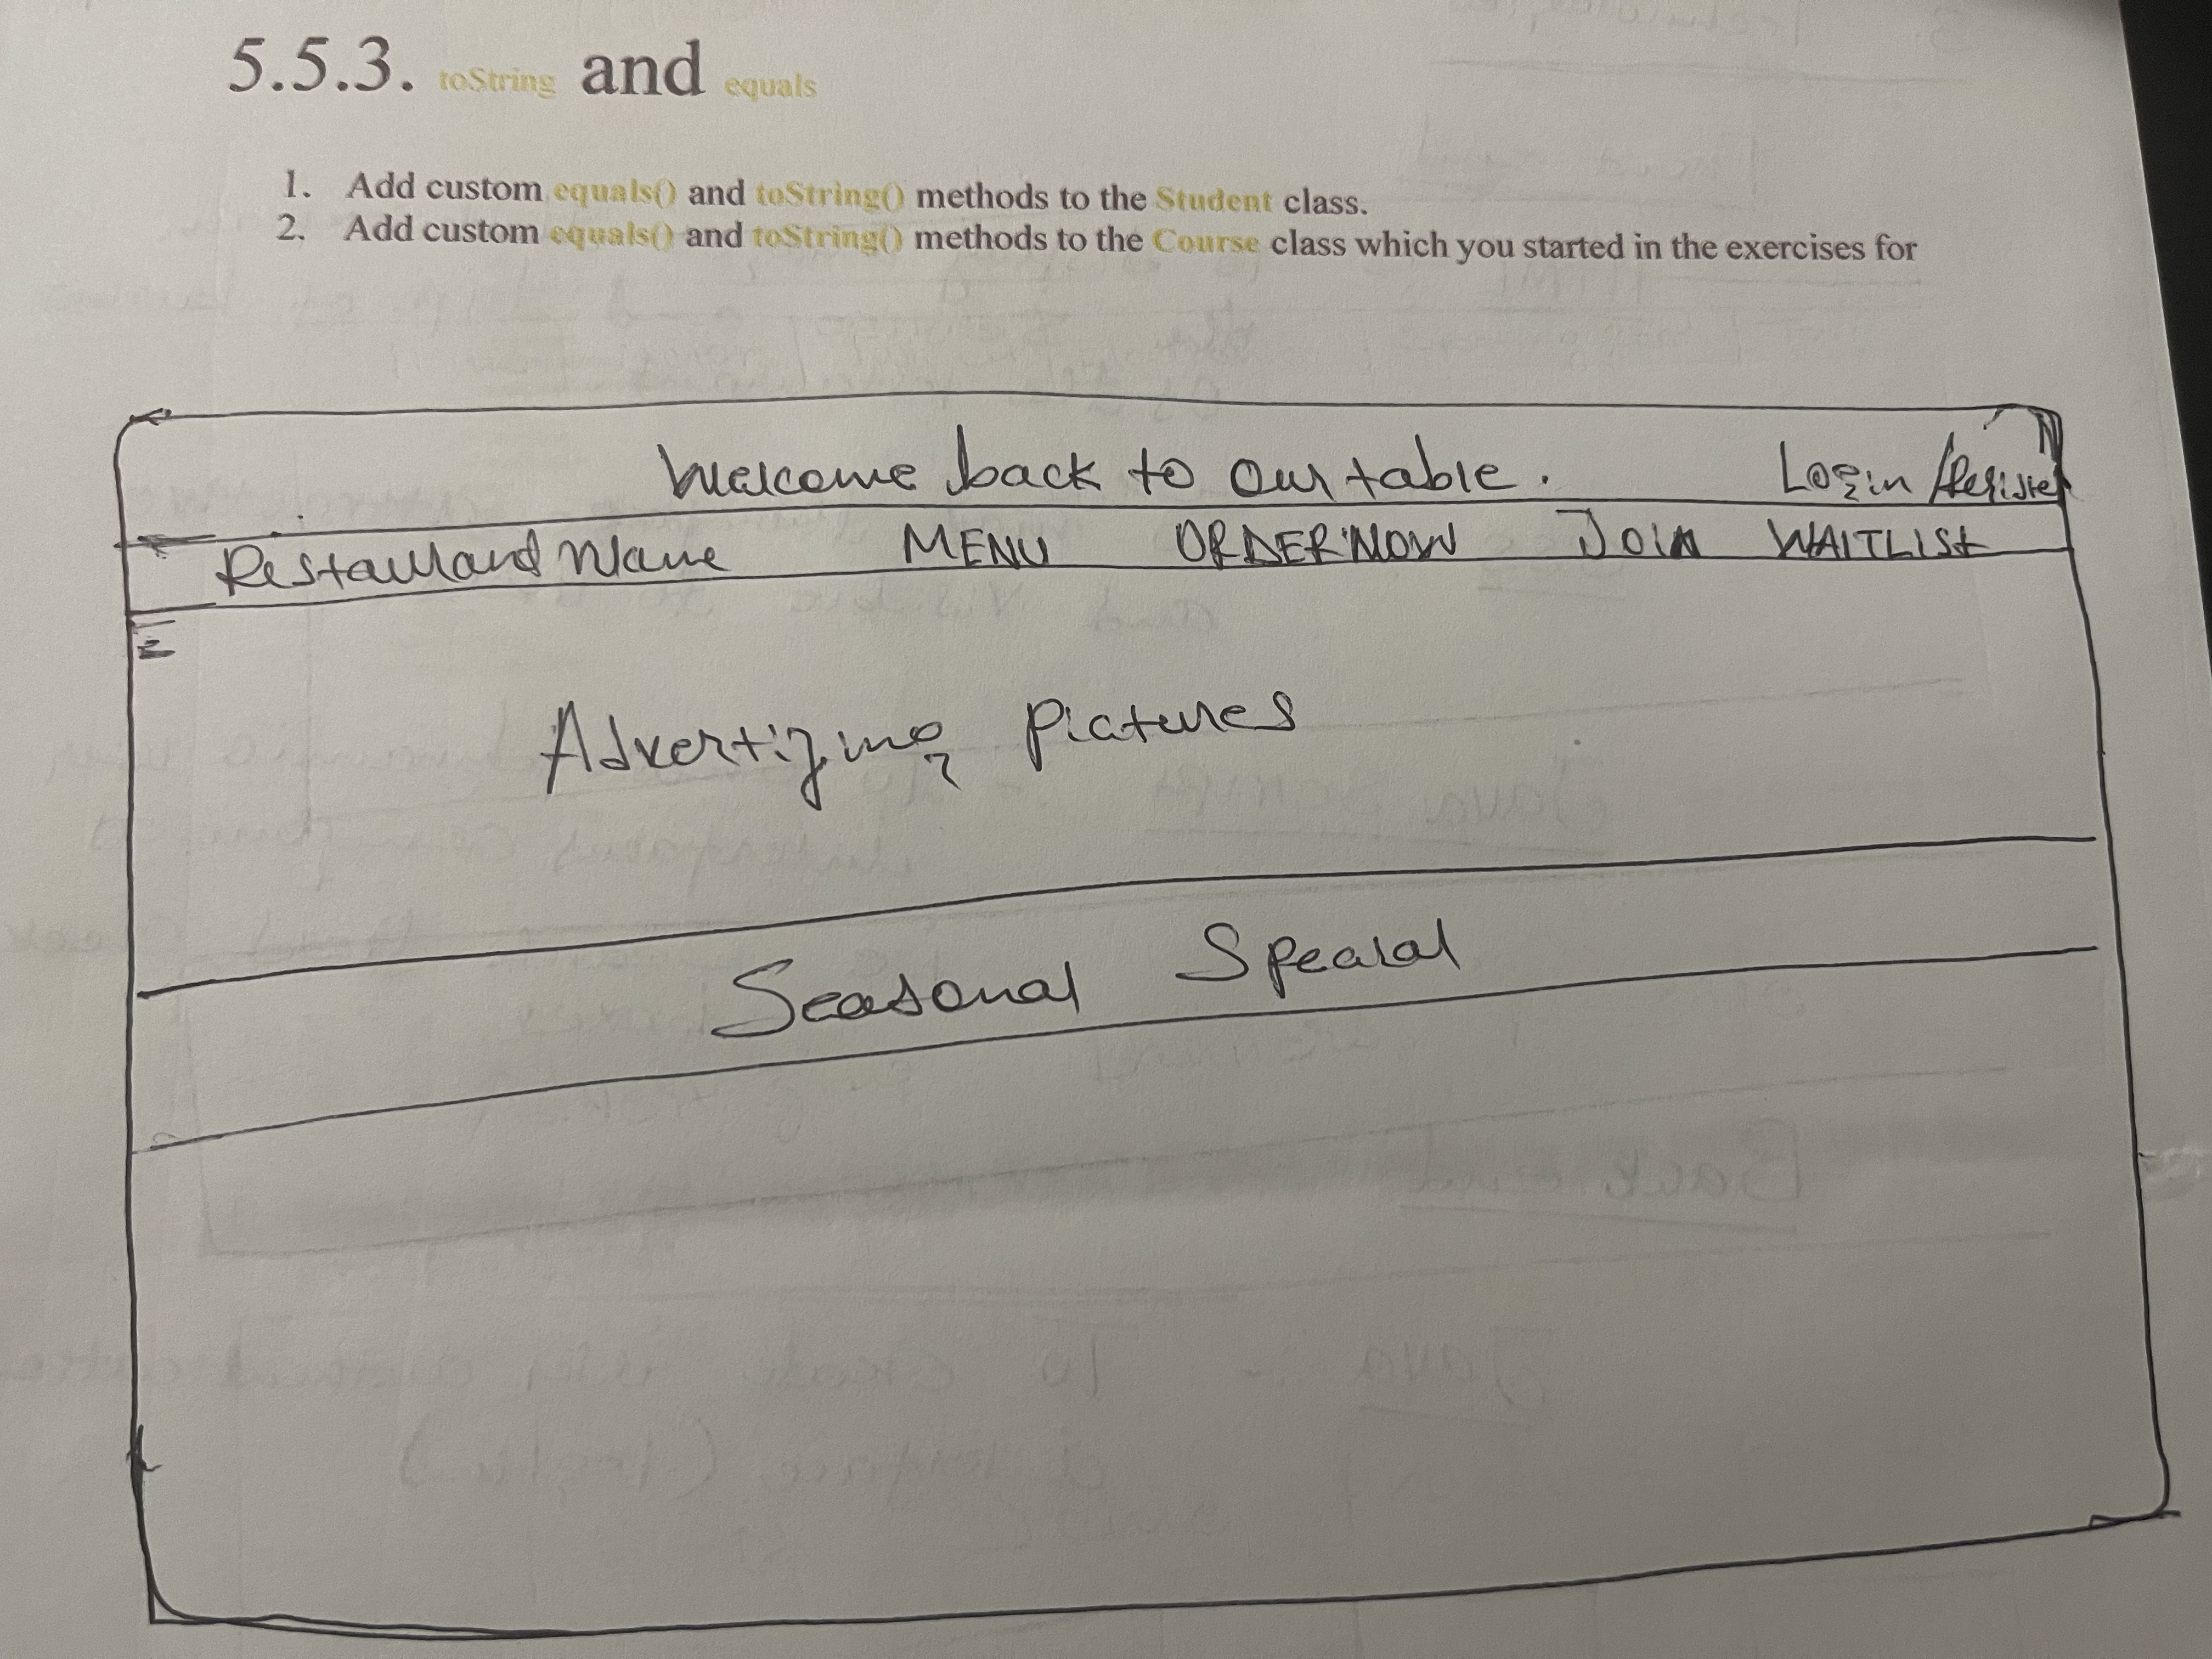 5.5.3. toString and equals
1. Add custom equals() and toString() methods to the Student class.
2. Add custom equals() and toString() methods to the Course class which you started in the exercises for
Welcome back to our table. Login/Register
Restaurand Name MENU ORDER NOW JOIN WAITLIST
Advertizing Pictures
Seasonal Special